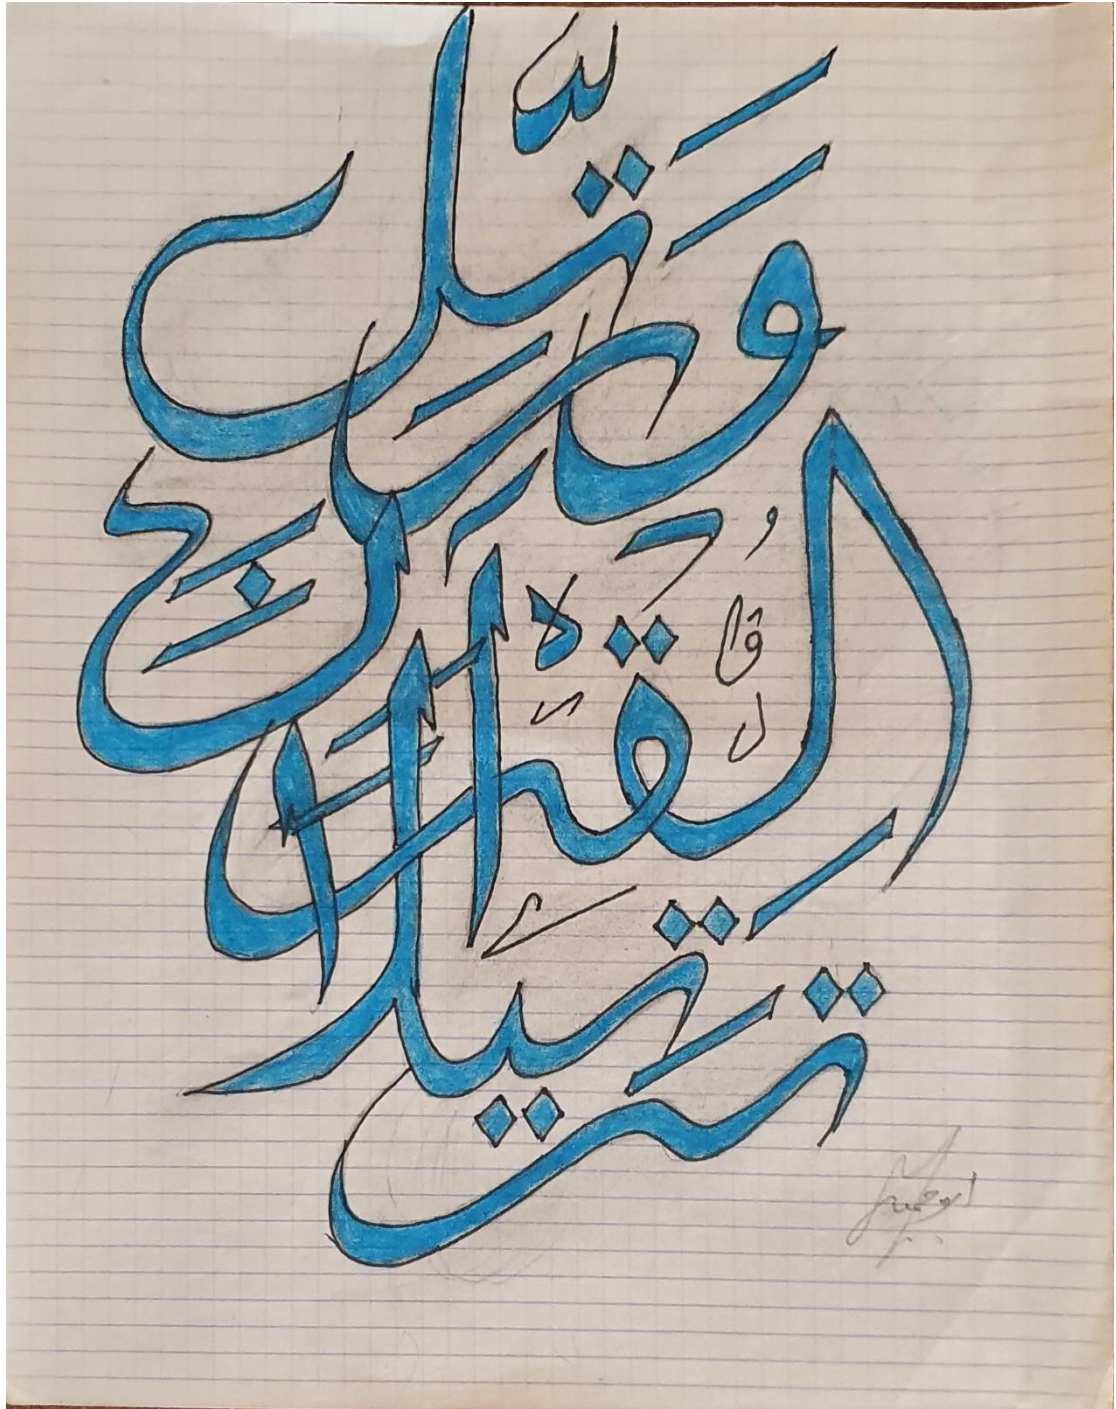 وَرَتِّلِ
الْقُرْآنَ
تَرْتِيلًا